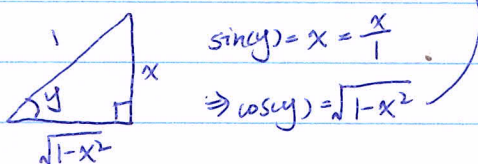 1
x
y
√1-x²
sin(y) = x = x/1
⇒ cos(y) = √1-x²